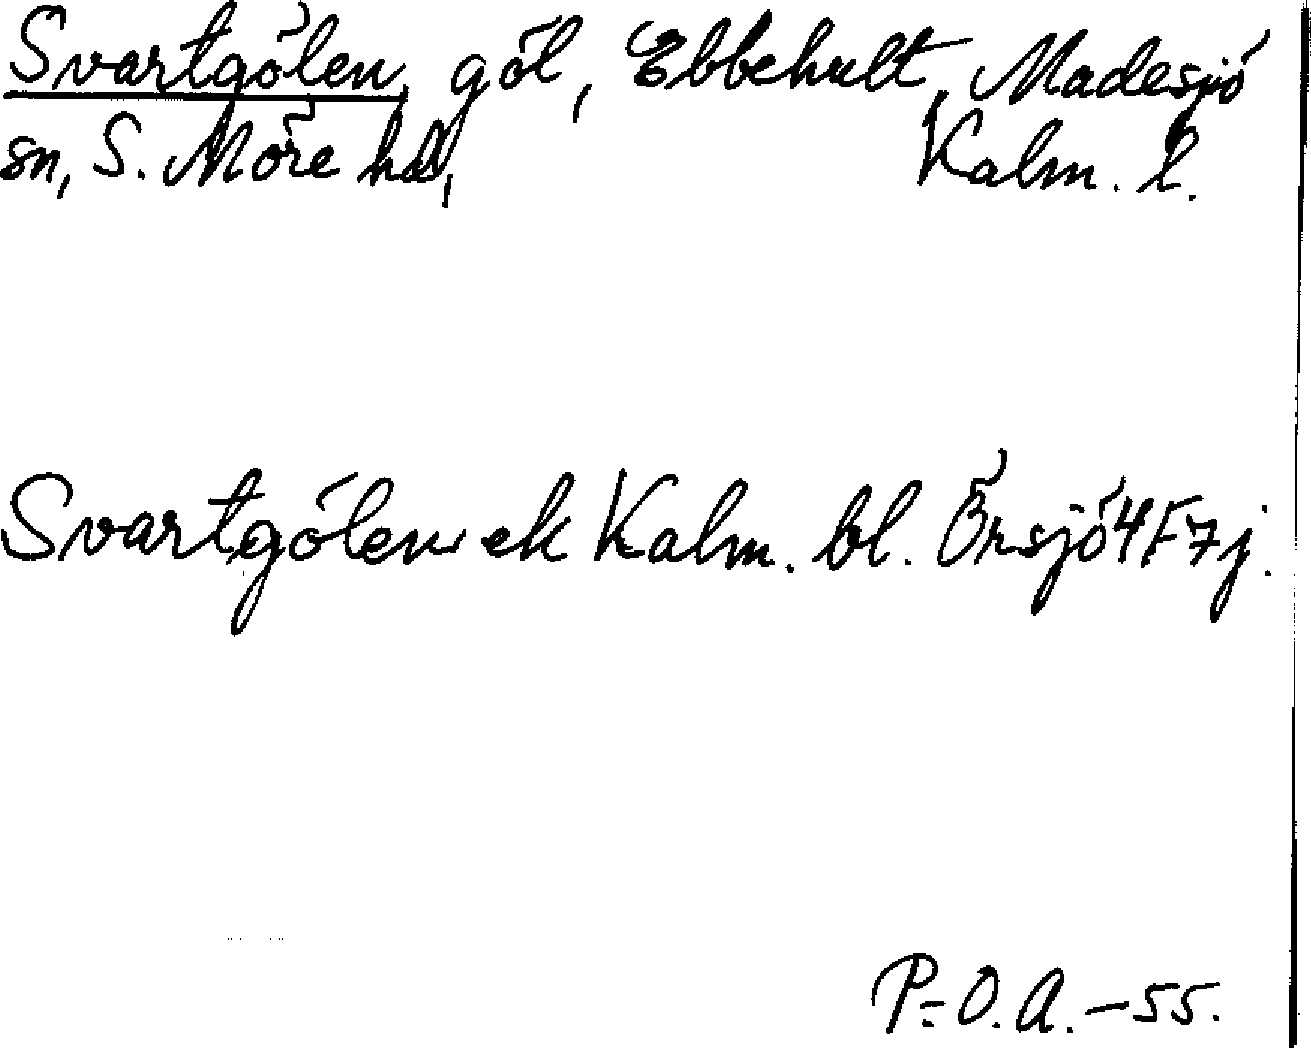 Svartgölen, göl, Ebbehult, Madesjö
sn, S. Möre hd, Kalm. l.
Svartgölen ek Kalm. bl. Örsjö 4F7j.
P-O.A.-55.